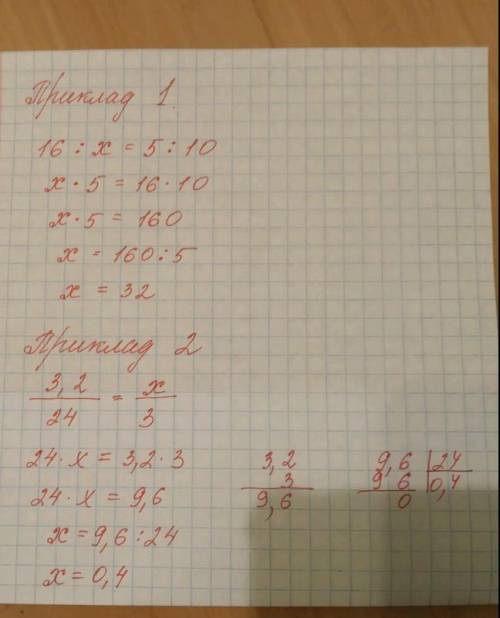 Приклад 1.
16 : x = 5 : 10
x · 5 = 16 · 10
x · 5 = 160
x = 160 : 5
x = 32
Приклад 2
3,2/24 = x/3
24 · x = 3,2 · 3
24 · x = 9,6
x = 9,6 : 24
x = 0,4
3,2
3
9,6
9,6 | 24
9 6 | 0,4
0